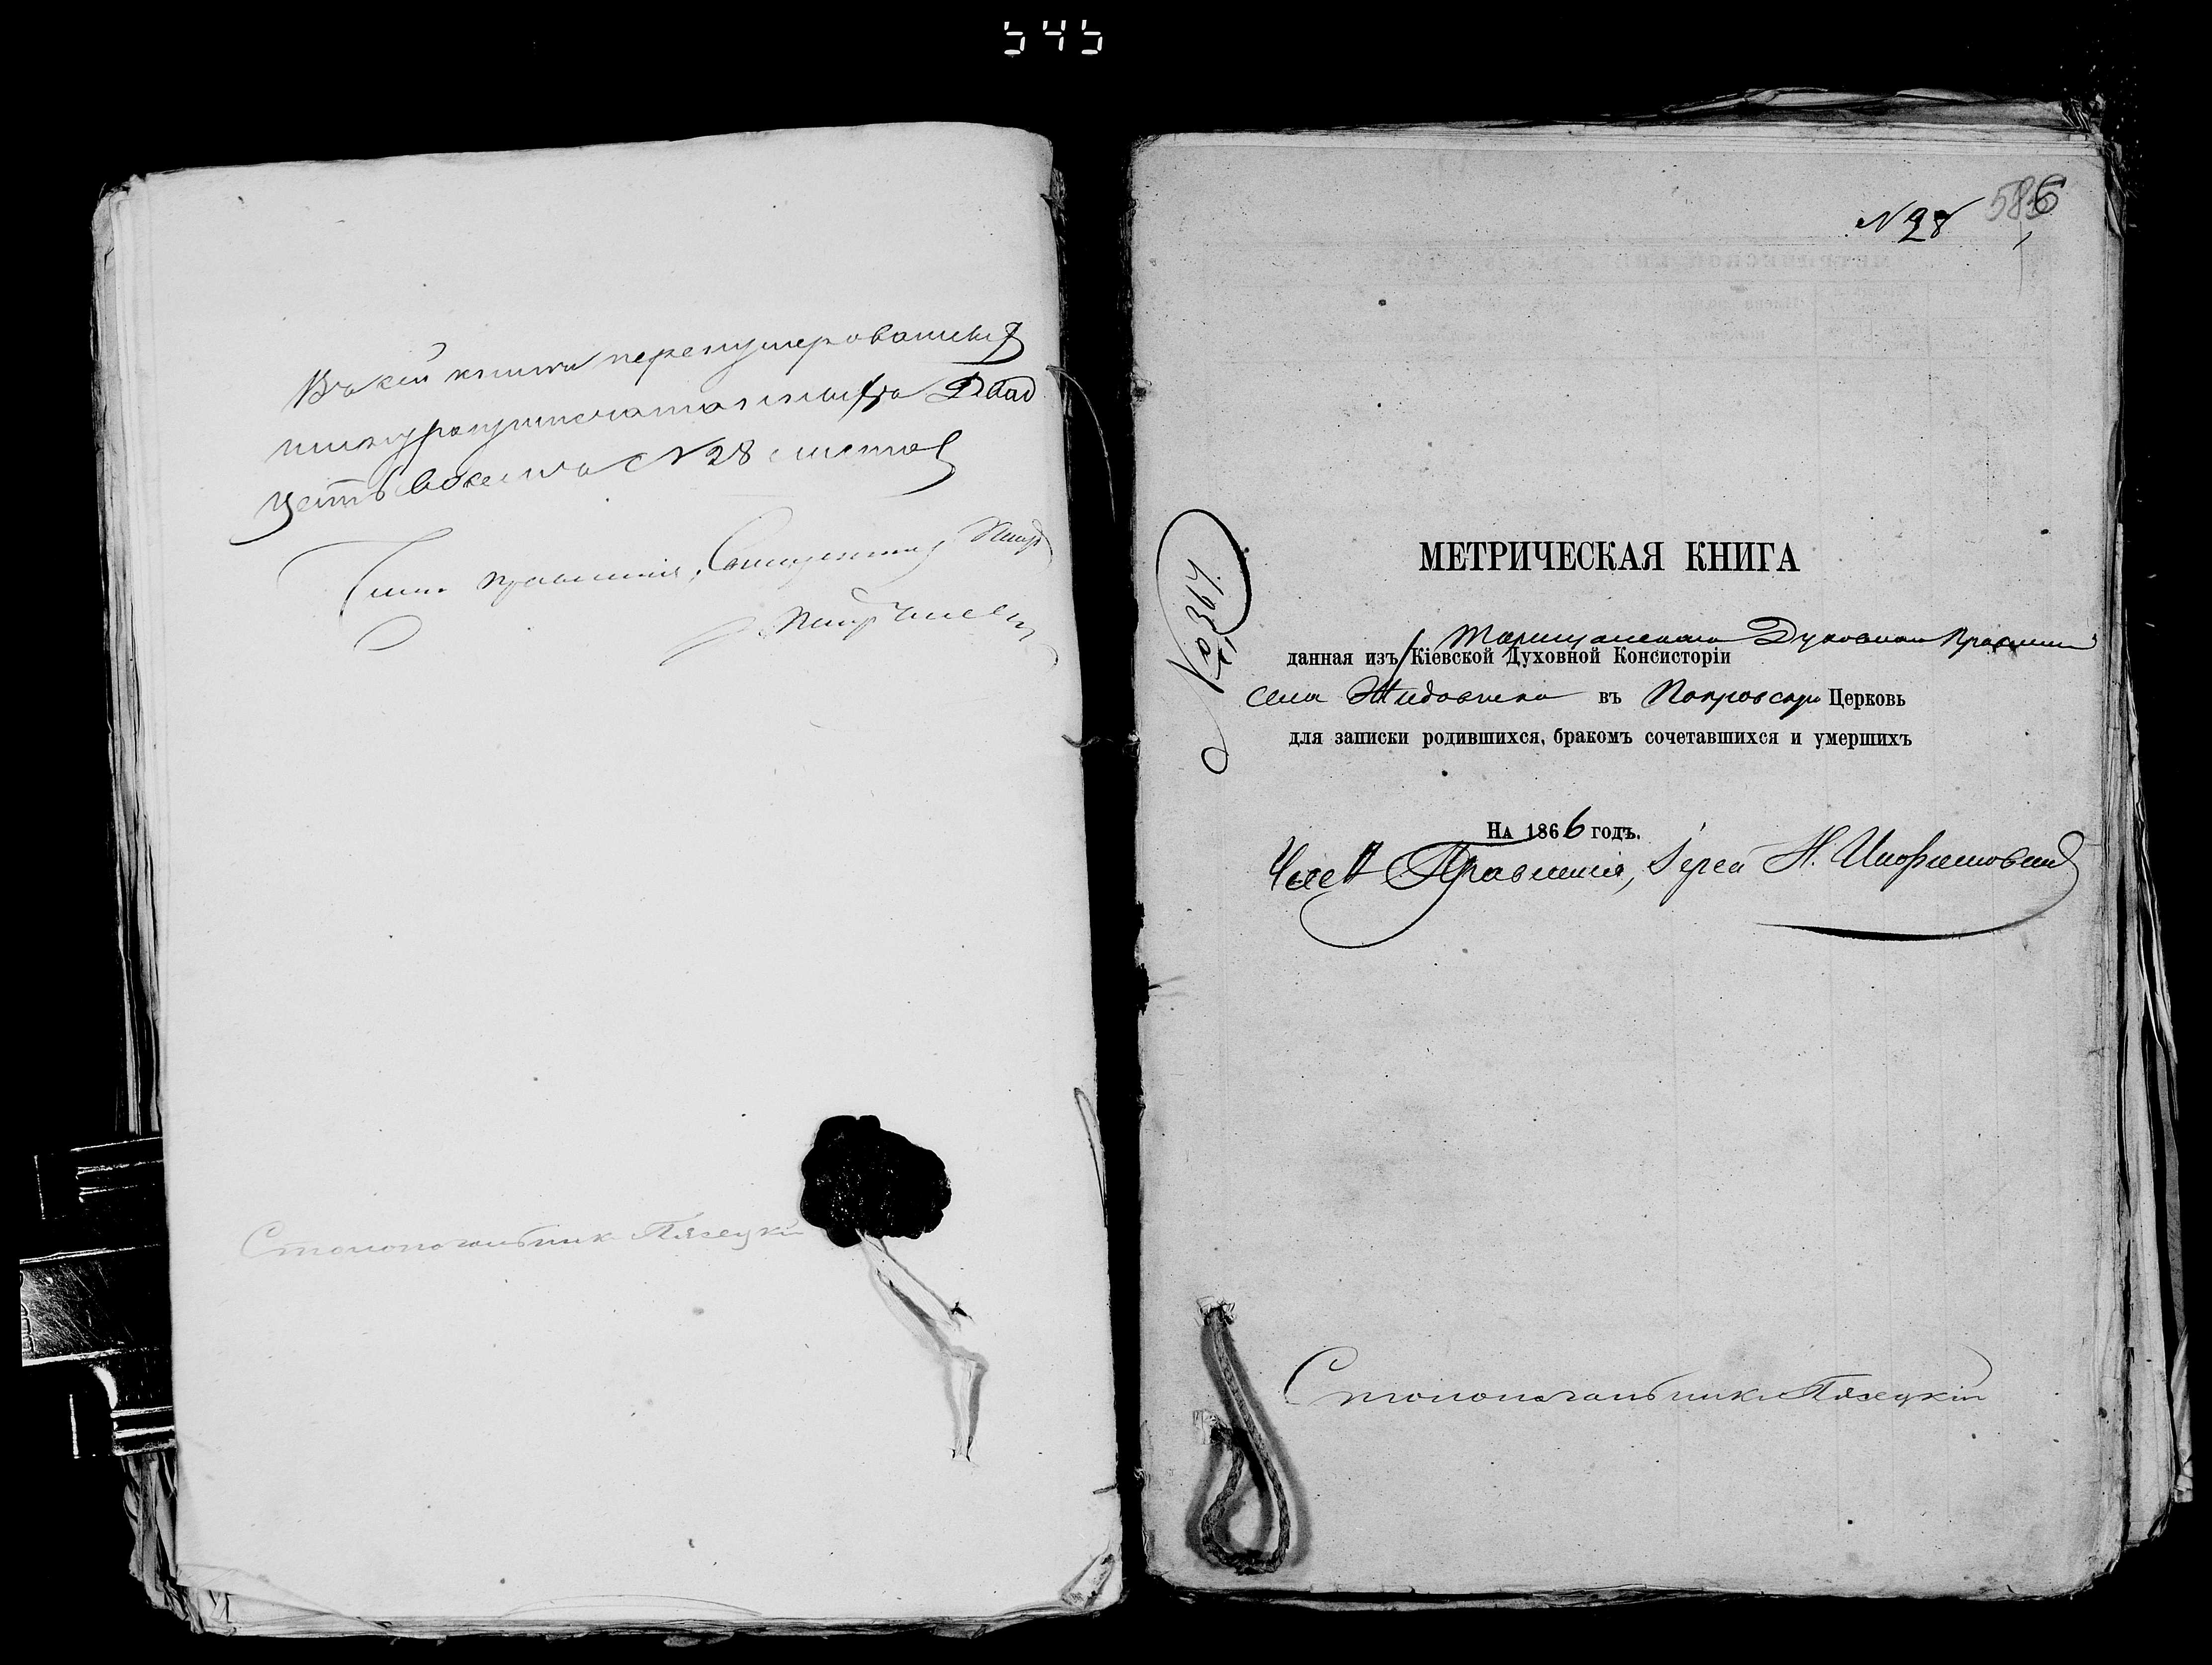 545
Въ сей книги перенумерованныхъ
шнуроприпечатанныхъ Двад
цать восемь N 28 листовъ
Членъ правленія, Священникъ
Столоначальник Пясецкій
N 28 586
No 364.
МЕТРИЧЕСКАЯ КНИГА
Таращанскаго Духовнаго Правленія
данная изъ Кіевской Духовной Консисторіи
села Жидовчика въ Покровскую Церковь
для записки родившихся, бракомъ сочетавшихся и умершихъ
На 1866 годъ.
Членъ Правленія, Іерей Н.
Столоначальникъ Пясецкій